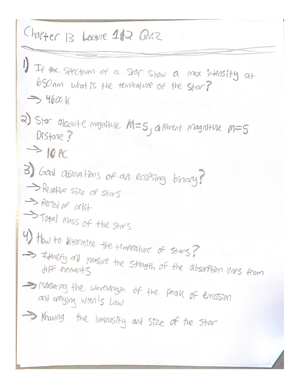 Chapter 13 Lecture 1&2 Quiz
1) If the spectrum of a star show a max intensity at
650nm what is the temperature of the star?
→ 4600 K
2) Star absolute magnitude M=5, apparent magnitude m=5
Distance?
→ 10 PC
3) Good observations of an eclipsing binary?
→ Relative size of stars
→ Period of orbit
→ Total mass of the stars
4) How to determine the temperature of stars?
→ Identify and measure the strength of the absorption lines from
diff elements
→ measuring the wavelength of the peak of emission
and applying Wien's Law
→ Knowing the luminosity and size of the star